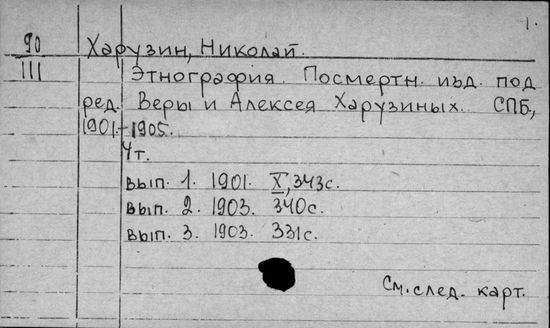 1.
90 Харузин, Николай.
III Этнография. Посмертн. изд. под
ред. Веры и Алексея Харузиных. СПБ,
1901-1905.
4т.
вып. 1. 1901. X, 343с.
вып. 2. 1903. 340с.
вып. 3. 1903. 331с.
См. след. карт.